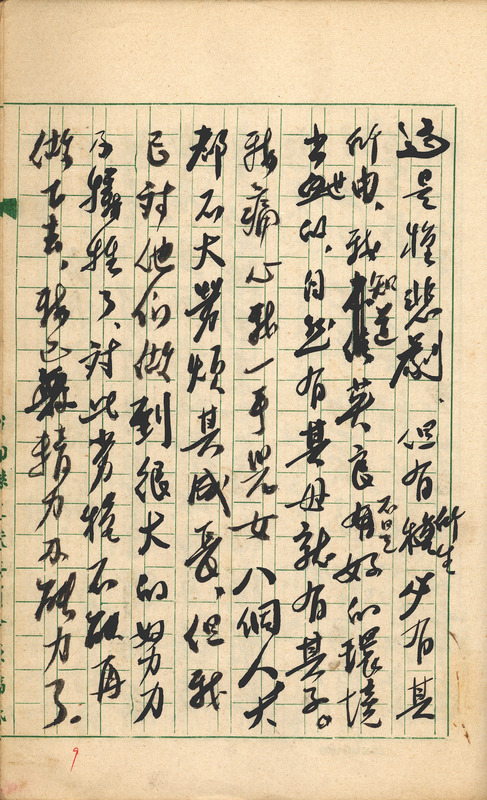 這是樁悲劇、但有種必有其
所生
所由、我知道英良不是有好的環境
出世的、自然有其母就有其子。
我痛心我一手兒女八個人大
都不大勞煩其成長、但我
已對他们做到很大的努力
了犧牲了、對此劣種不能再
做下去、我已無精力和能力了.
9